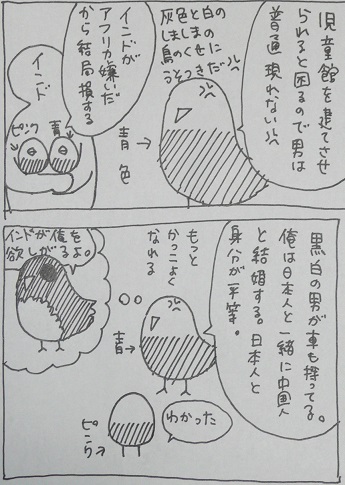 児童館を建てさせ
られると困るので男は
普通現れない
青色→
インドが
アフリカ嫌いだ
から結局損する
インド
青
ピンク
黒白の男が車も探ってる。
俺は日本人と一緒に中国人
と結婚する。日本人と
身分が平等。
もっと
かっこよく
なれる
青→
インドが俺を
欲しがるよ。
わかった
ピンク→